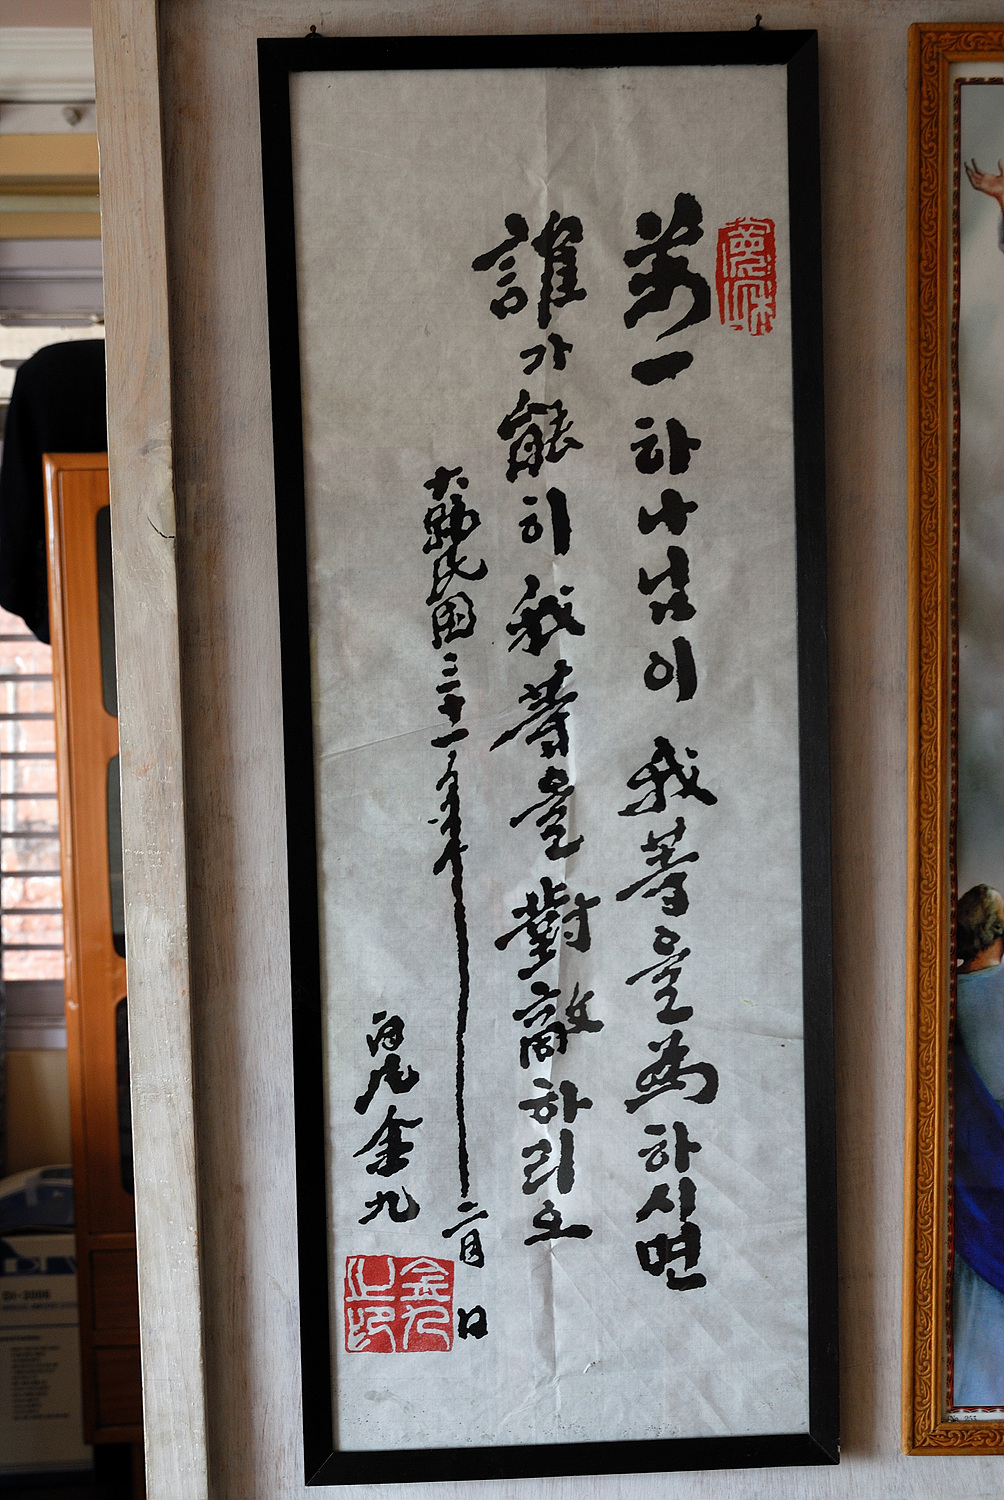 萬一하나님이 我等을 為하시면
誰가 能히 我等을 對敵하리오
大韓民国三十一年二月 日
白凡金九
金九之印